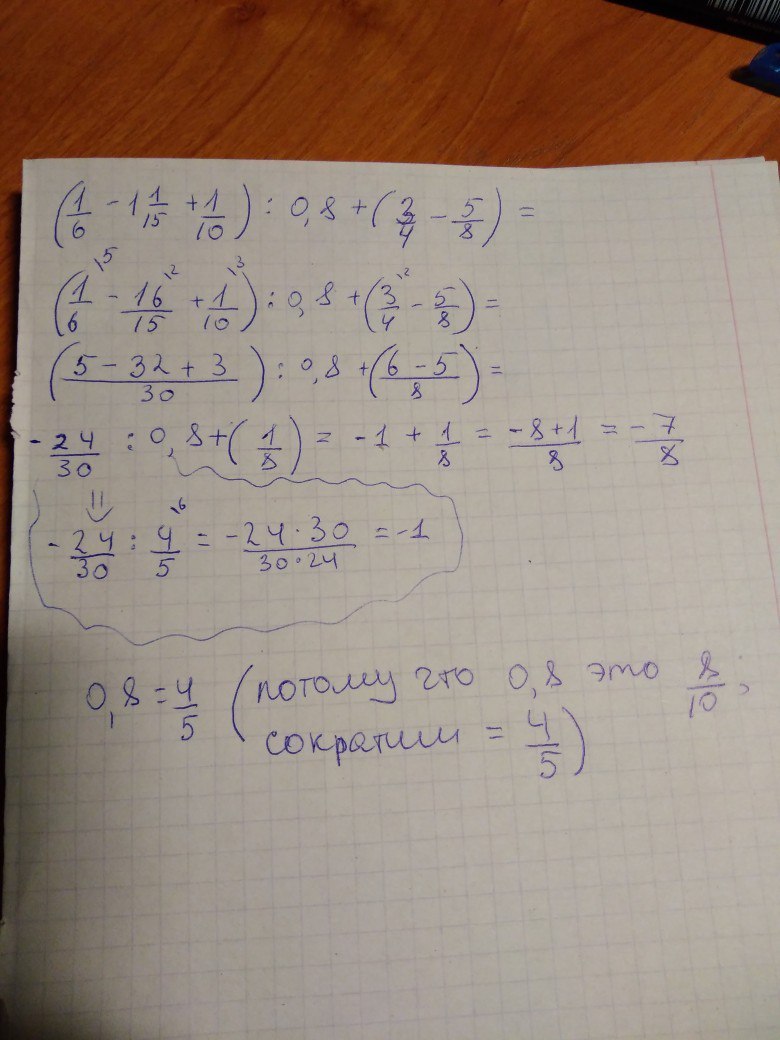 (1/6 - 1 1/15 + 1/10) : 0,8 + (3/4 - 5/8) =
(1/6 \5 - 16/15 \2 + 1/10 \3) : 0,8 + (3/4 \2 - 5/8) =
((5 - 32 + 3)/30) : 0,8 + ((6 - 5)/8) =
-24/30 : 0,8 + (1/8) = -1 + 1/8 = (-8+1)/8 = -7/8
-24/30 : 4/5 \6 = -(24·30)/(30·24) = -1
0,8 = 4/5 (потому что 0,8 это 8/10,
сократили = 4/5)